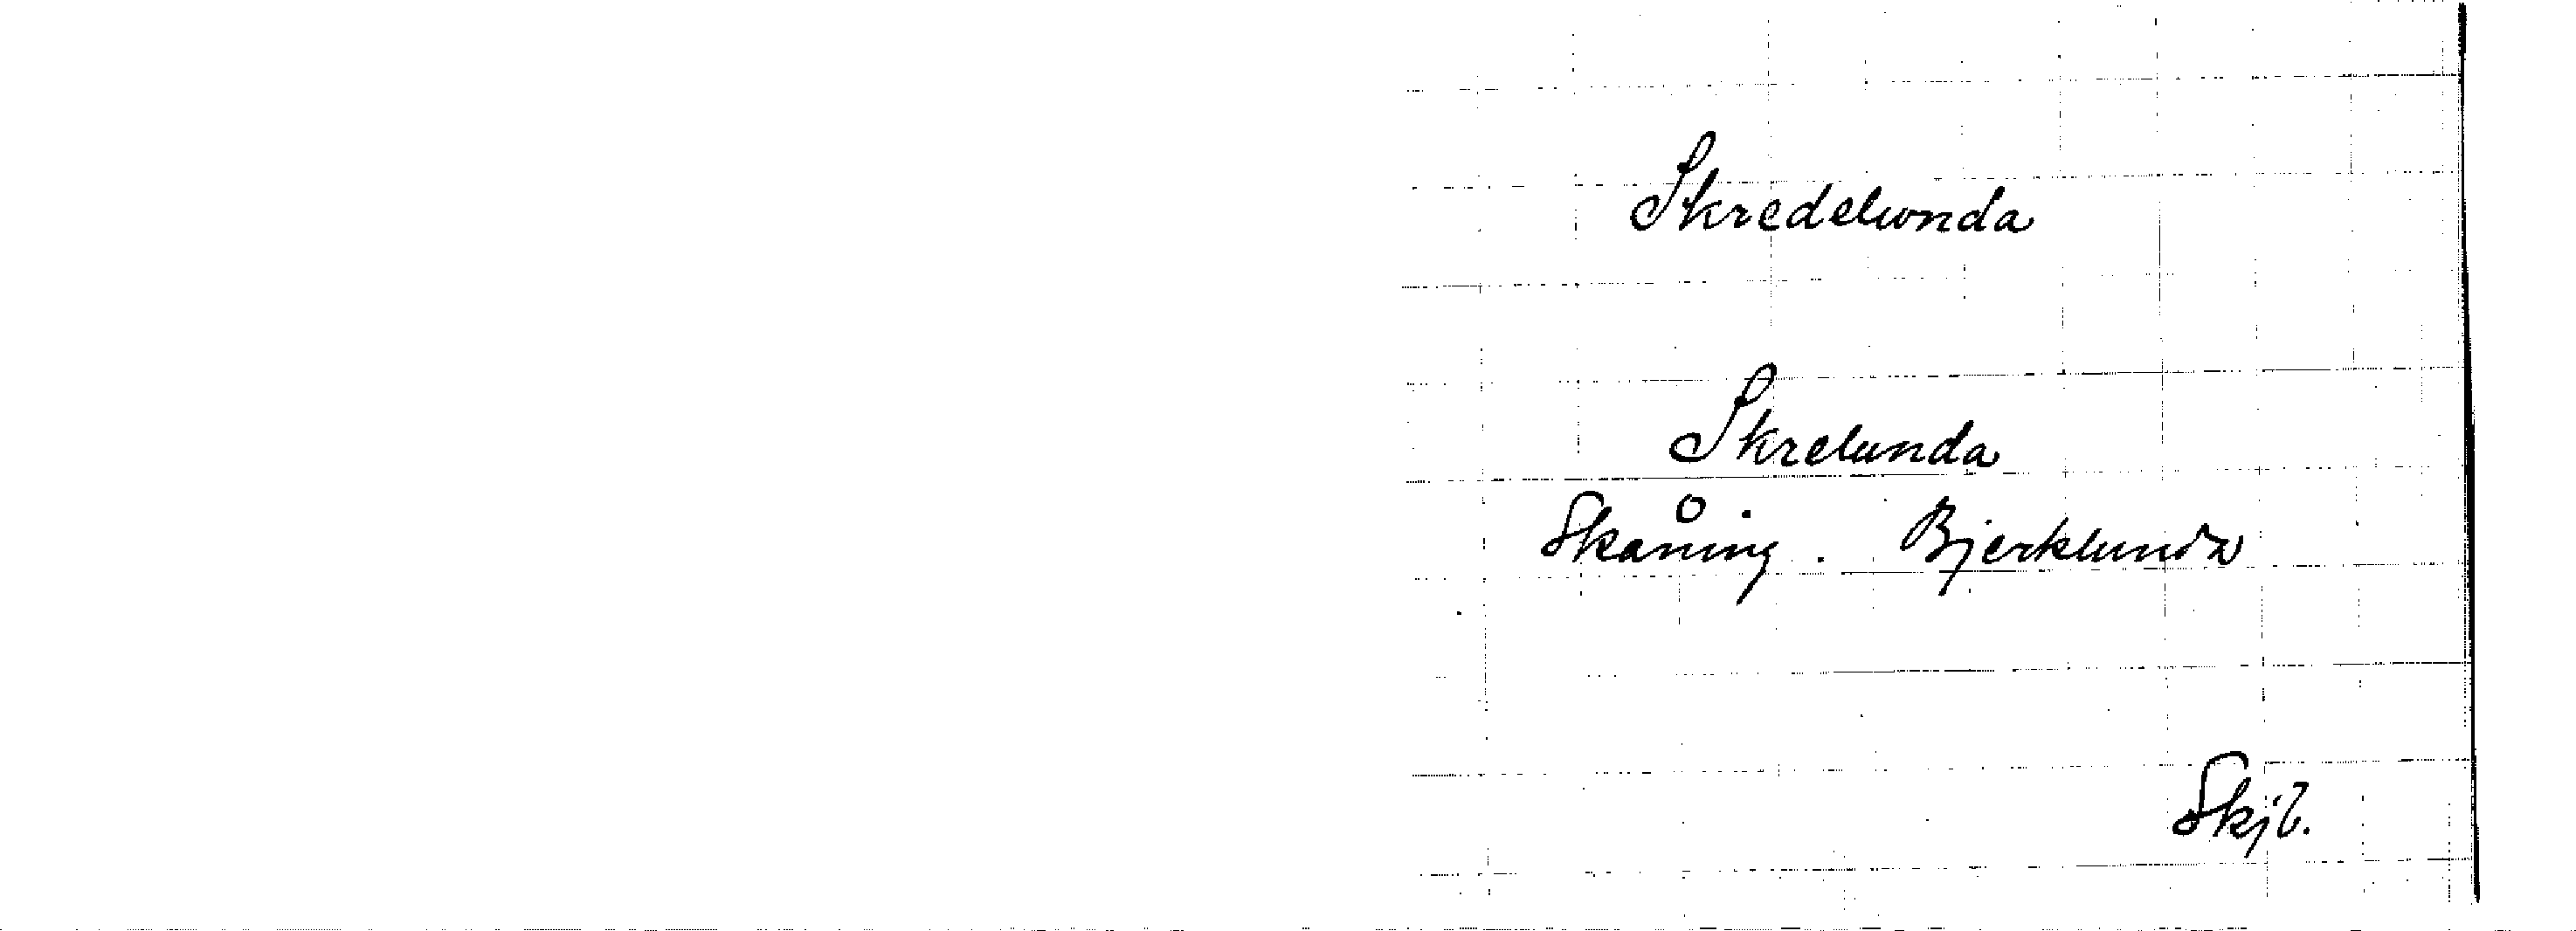 Skredelunda
Skrelunda
Skåning. Bjerklunda
Skjb.